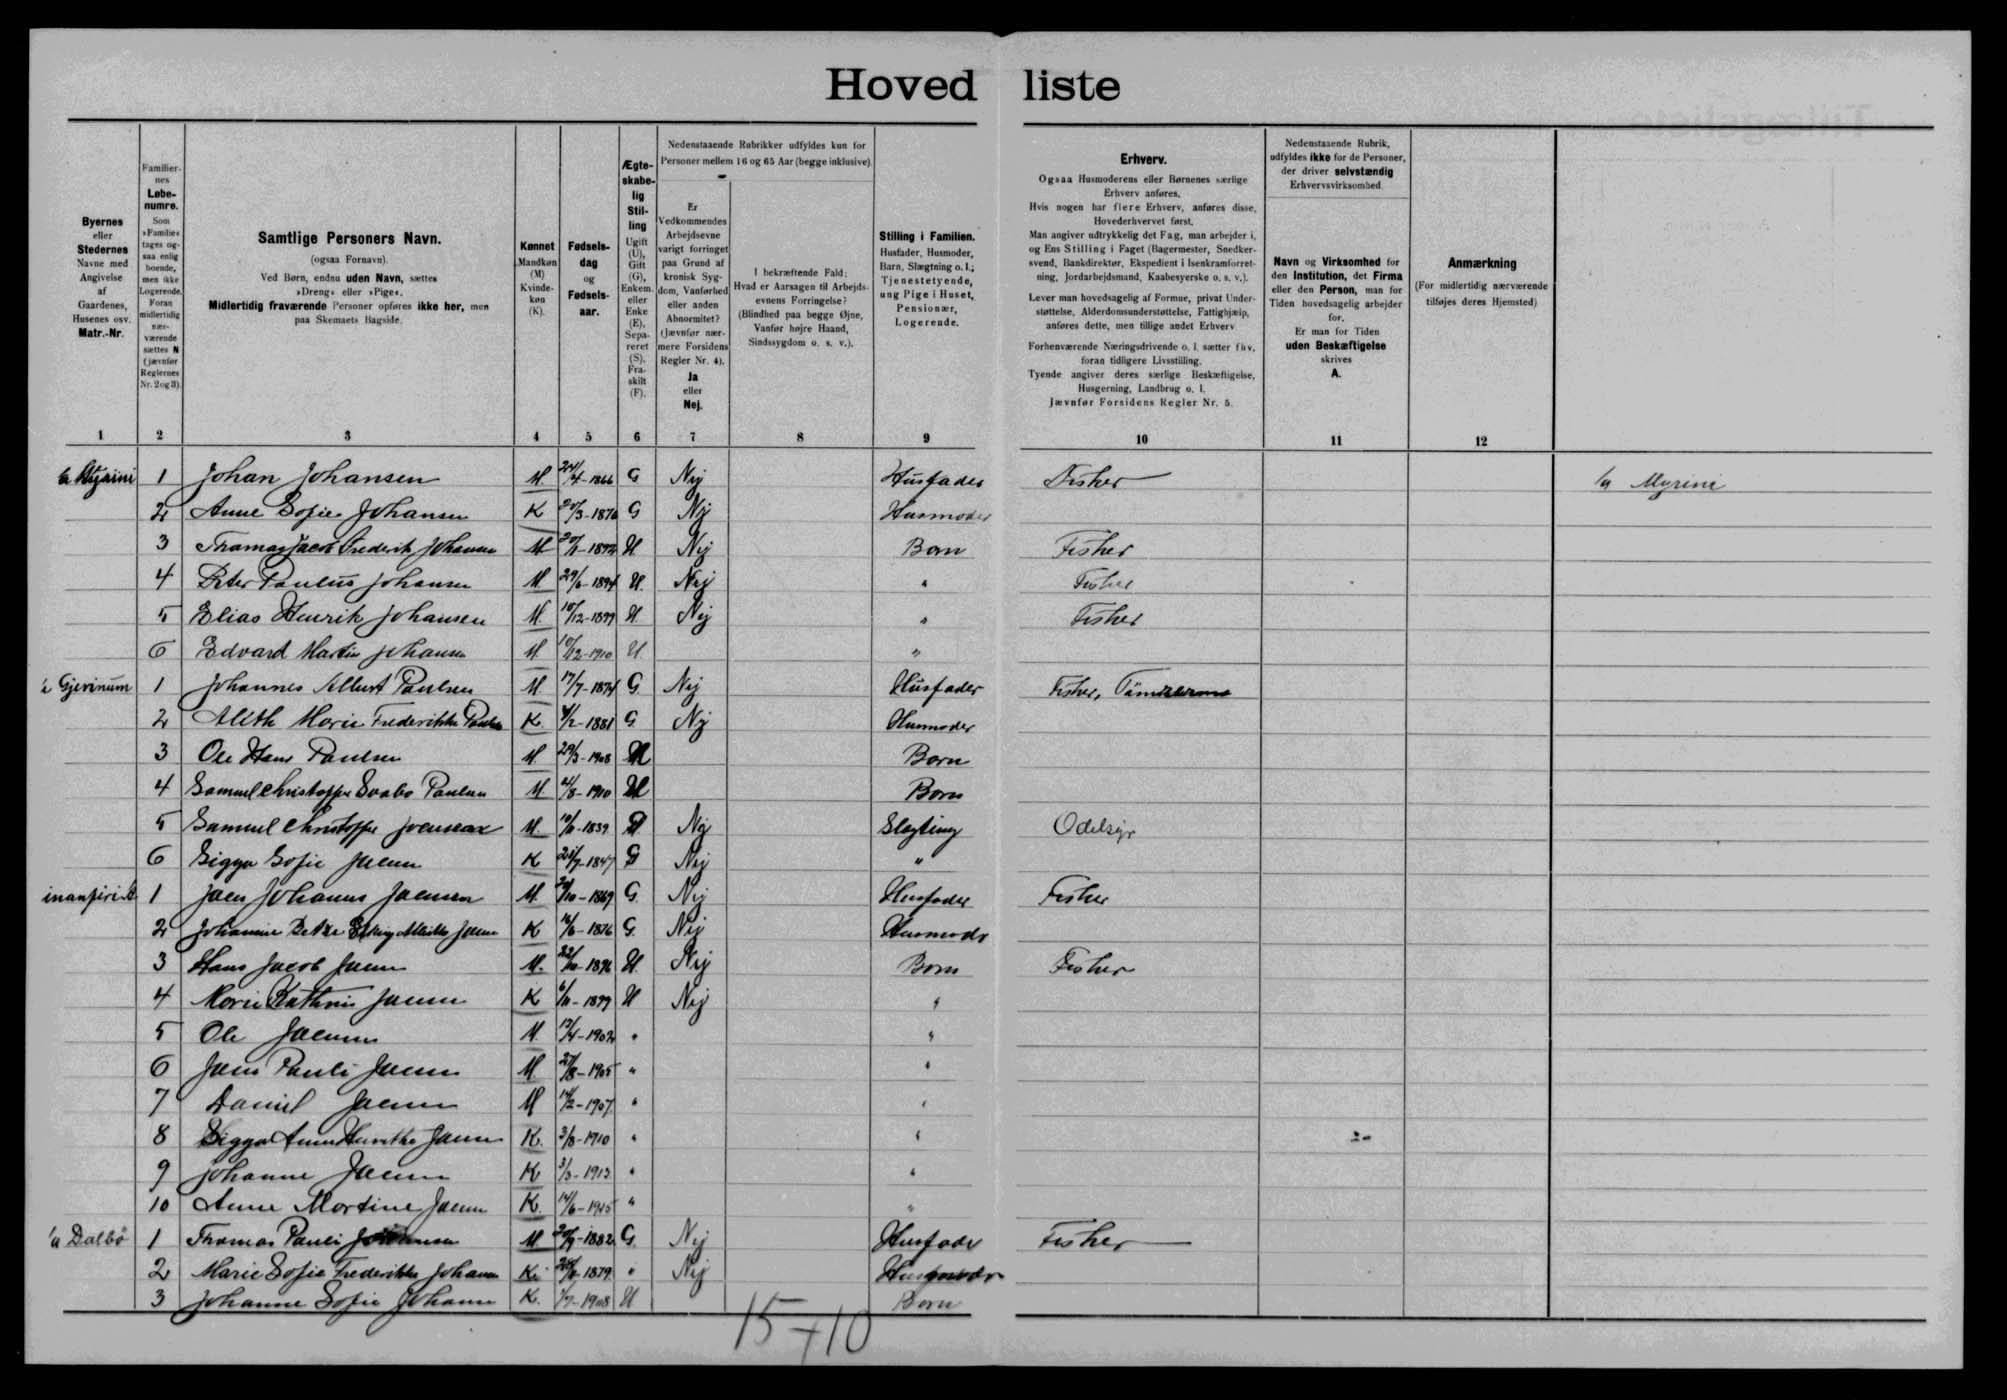 Hovedliste
Byernes
eller
Stedernes
Navne med
Angivelse
af
Gaardenes,
Husenes osv.
Matr.-Nr.
Familier-
nes
Løbe-
numre.
Som
»Familie«
tages og-
saa enlig
boende,
men ikke
Logerende.
Foran
midlertidig
nær-
værende
sættes N
(jævnfør
Reglernes
Nr. 2 og 3).
Samtlige Personers Navn.
(ogsaa Fornavn).
Ved Børn, endnu uden Navn, sættes
»Dreng« eller »Pige«.
Midlertidig fraværende Personer opføres ikke her, men
paa Skemaets Bagside.
Kønnet
Mandkøn
(M)
Kvinde-
køn
(K).
Fødsels-
dag
og
Fødsels-
aar.
Ægte-
skabe-
lig
Stil-
ling
Ugift
(U),
Gift
(G),
Enkem.
eller
Enke
(E),
Sepa-
reret
(S),
Fra-
skilt
(F).
Nedenstaaende Rubrikker udfyldes kun for
Personer mellem 16 og 65 Aar (begge inklusive).
Er
Vedkommendes
Arbejdsevne
varigt forringet
paa Grund af
kronisk Syg-
dom, Vanførhed
eller anden
Abnormitet?
(Jævnfør nær-
mere Forsidens
Regler Nr. 4).
Ja
eller
Nej.
I bekræftende Fald:
Hvad er Aarsagen til Arbejds-
evnens Forringelse?
(Blindhed paa begge Øjne,
Vanfør højre Haand,
Sindssygdom o. s. v.).
Stilling i Familien.
Husfader, Husmoder,
Barn, Slægtning o. l.;
Tjenestetyende,
ung Pige i Huset,
Pensionær,
Logerende.
Erhverv.
Ogsaa Husmoderens eller Børnenes særlige
Erhverv anføres.
Hvis nogen har flere Erhverv, anføres disse,
Hovederhvervet først.
Man angiver udtrykkelig det Fag, man arbejder i,
og Ens Stilling i Faget (Bagermester, Snedker-
svend, Bankdirektør, Ekspedient i Isenkramforret-
ning, Jordarbejdsmand, Kaabesyerske o. s. v.).
Lever man hovedsagelig af Formue, privat Under-
støttelse, Alderdomsunderstøttelse, Fattighjælp,
anføres dette, men tillige andet Erhverv
Forhenværende Næringsdrivende o. l. sætter fhv.
foran tidligere Livsstilling.
Tyende angiver deres særlige Beskæftigelse,
Husgerning, Landbrug o. l.
Jævnfør Forsidens Regler Nr. 5.
Nedenstaaende Rubrik,
udfyldes ikke for de Personer,
der driver selvstændig
Erhvervsvirksomhed.
Navn og Virksomhed for
den Institution, det Firma
eller den Person, man for
Tiden hovedsagelig arbejder
for.
Er man for Tiden
uden Beskæftigelse
skrives
A.
Anmærkning
(For midlertidig nærværende
tilføjes deres Hjemsted)
1 2 3 4 5 6 7 8 9 10 11 12
1 Johan Johansen M 24/4-1866 G Nej Husfader Fisker /a Myrini
2 Anne Sofie Johansen K 25/3-1870 G Nej Husmoder
3 Thomas Jacob Frederik Johansen M 1892 U Nej Barn Fisker
4 Peter Paulus Johansen M. 29/6-1894 U. Nej " Fisker
5 Elias Henrik Johansen M. 10/12-1899 U. Nej " Fisker
6 Edvard Martin Johansen M 10/12-1910 U. "
Gjerinum 1 Johannes Albert Paulsen M. 17/7-1874 G. Nej Husfader Fisker,
2 Marie Frederikke K. 1881 G Nej Husmoder
3 Ole Hans Paulsen M. 29/3-1908 U Barn
4 Samuel Christoffer Svabo Paulsen M. 1910 U Barn
5 Samuel Christoffer M. 1839 Nej Slægtning
6 Sigga Sofie Joensen K 1847 Nej "
1 Joen Johannes Joensen M. 1869 G. Nej Husfader Fisker
2 Johanne Joensen K 16/6-1876 G. Nej Husmoder
3 Hans Jacob Joensen M. 1896 U. Nej Barn Fisker
4 Marie Kathrine Joensen K 1899 U Nej "
5 Ole Joensen M. 1902 " "
6 Jens Pauli Joensen M. 27/8-1905 " "
7 Daniel Joensen M 14/2-1907 " "
8 Sigga Anna Joensen K. 3/8-1910 " "
9 Johanne Joensen K 3/3-1913 " "
10 Anne Martine Joensen K. 14/6-1915 " "
/a Dalbø 1 Thomas Pauli Johansen M 1882 G. Nej Husfader Fisker
2 Marie Sofie Frederikke Johansen K. 1879 " Nej Husmoder
3 Johanne Sofie Johansen K. 1/7-1908 U Barn
15+10